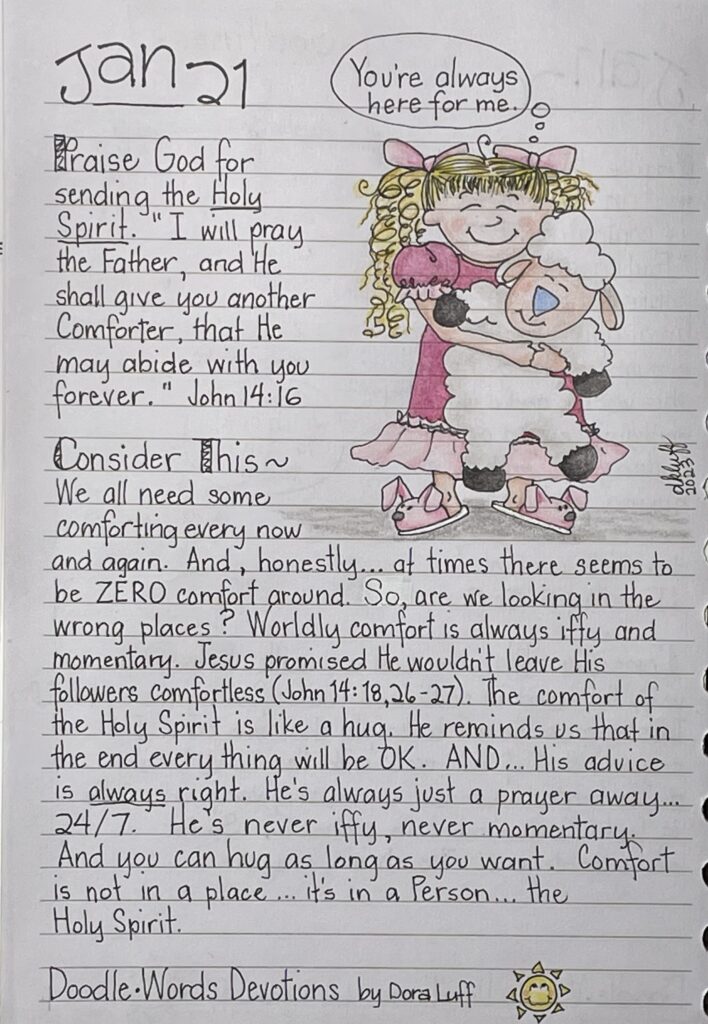 Jan 21
You're always
here for me.
Praise God for
sending the Holy
Spirit. "I will pray
the Father, and He
shall give you another
Comforter, that He
may abide with you
forever." John 14:16
Consider This~
We all need some
comforting every now
and again. And, honestly... at times there seems to
be ZERO comfort around. So, are we looking in the
wrong places? Worldly comfort is always iffy and
momentary. Jesus promised He wouldn't leave His
followers comfortless (John 14:18,26-27). The comfort of
the Holy Spirit is like a hug. He reminds us that in
the end every thing will be OK. AND... His advice
is always right. He's always just a prayer away...
24/7. He's never iffy, never momentary.
And you can hug as long as you want. Comfort
is not in a place... it's in a Person... the
Holy Spirit.
dkluff
2023
Doodle•Words Devotions by Dora Luff